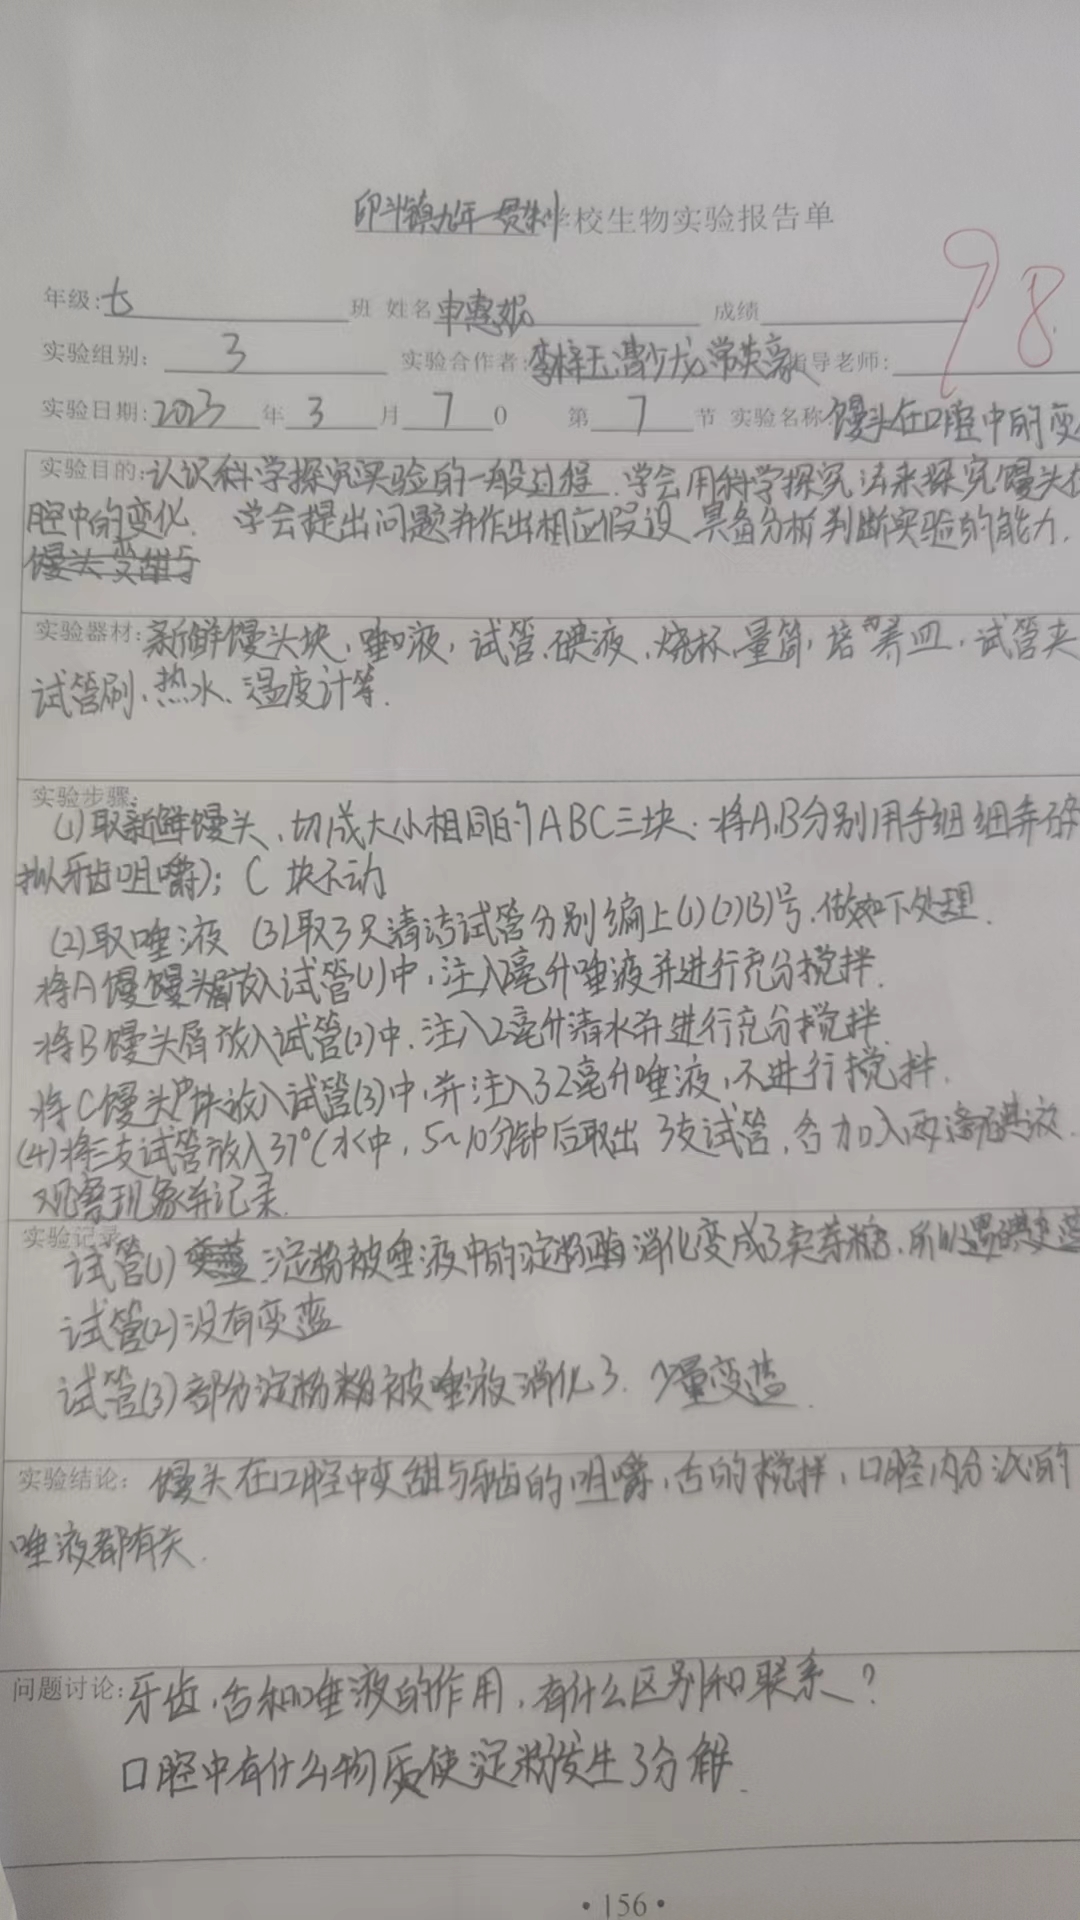 印斗镇九年一贯制学校生物实验报告单
98
年级:七 班 姓名 申惠妮 成绩
实验组别: 3 实验合作者: 李梓玉 曹少龙 常英豪 指导老师:
实验日期: 2023 年 3 月 7 日 第 7 节 实验名称: 馒头在口腔中的变
实验目的: 认识科学探究实验的一般过程.学会用科学探究法来探究馒头在
腔中的变化. 学会提出问题并作出相应假设 具备分析判断实验的能力.
馒头变甜与
实验器材: 新鲜馒头块,唾液,试管.碘液,烧杯.量筒,培养皿,试管夹
试管刷、热水、温度计等.
实验步骤:
(1)取新鲜馒头,切成大小相同的ABC三块:将A,B分别用手细细弄碎
拟牙齿咀嚼);C块不动
(2)取唾液 (3)取3只清洁试管分别编上(1)(2)(3)号.做如下处理.
将A馒馒头屑放入试管(1)中,注入2毫升唾液并进行充分搅拌.
将B馒头屑放入试管(2)中.注入2毫升清水并进行充分搅拌.
将C馒头块放入试管(3)中,并注入32毫升唾液,不进行搅拌.
(4)将三支试管放入37℃水中,5~10分钟后取出3支试管,各加入两滴碘液.
观察现象并记录.
实验记录:
试管(1)变蓝:淀粉被唾液中的淀粉酶消化变成了麦芽糖.所以遇碘变蓝
试管(2)没有变蓝
试管(3)部分淀粉粉被唾液消化了.少量变蓝.
实验结论: 馒头在口腔中变甜与牙齿的咀嚼,舌的搅拌,口腔内分泌的
唾液都有关.
问题讨论: 牙齿.舌和唾液的作用,有什么区别和联系?
口腔中有什么物质使淀粉发生了分解.
·156·